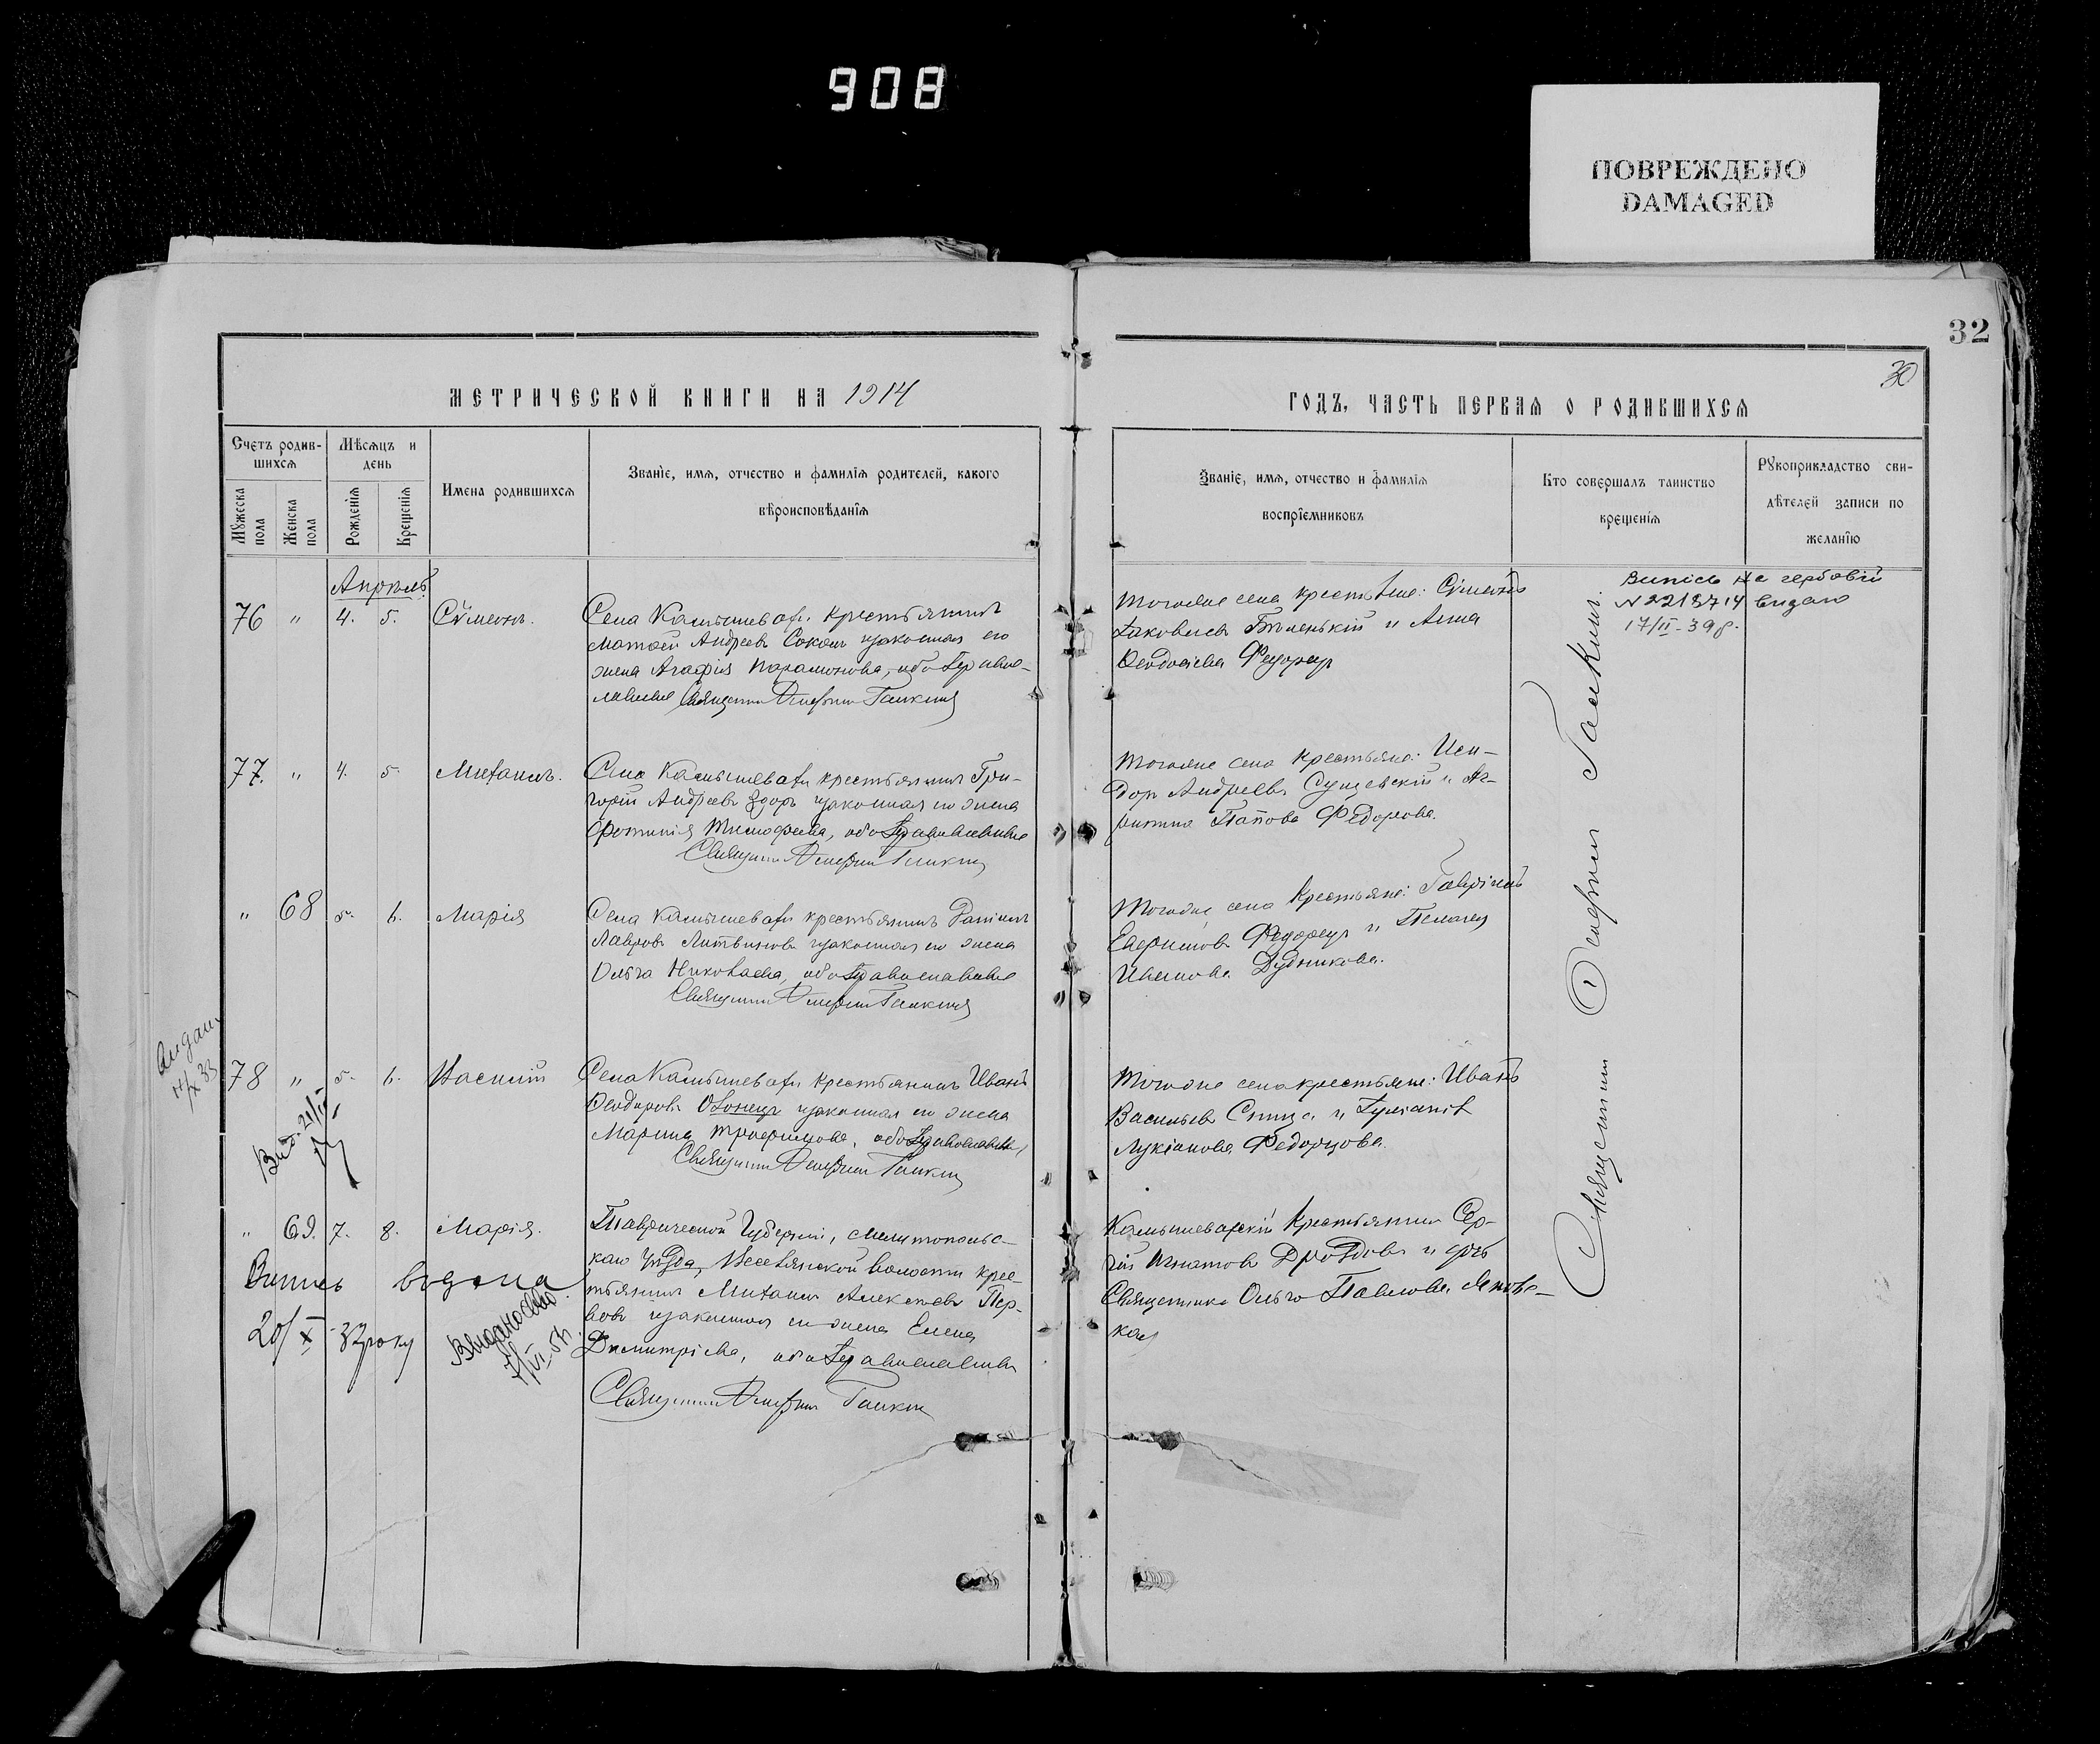 908
ПОВРЕЖДЕНО
DAMAGED
32
30
МЕТРИЧЕСКОЙ КНИГИ НА 1914
ГОДЪ, ЧАСТЬ ПЕРВАЯ О РОДИВШИХСЯ
Счетъ родившихся
Мужеска пола
Женска пола
Мѣсяцъ и день
Рожденія
Крещенія
Имена родившихся
Званіе, имя, отчество и фамилія родителей, какого
вѣроисповѣданія
Званіе, имя, отчество и фамилія
воспріемниковъ
Кто совершалъ таинство
крещенія
Рукоприкладство сви-
дѣтелей записи по
желанію
Апрѣль
76 " 4. 5. Сѵмеонъ.
Села Камышевахи крестьянинъ
Матѳей Андреевъ Соколъ и законная его
жена Агафія Парамонова, оба Православ-
Священникъ
Тогоже села крестьяне: Сѵмеонъ
Іаковлевъ Бѣленькій и Анна
Ѳеодосіева Федорец
Випись на гербовій
N 2218714 видано
17/II-39р.
77. " 4. 5. Михаилъ.
Села Камышевахи крестьянинъ Гри-
горій Андреевъ Здоръ и законная его жена
Фотинія Тимофеева, оба Православные
Священникъ
Тогоже села крестьяне: Иси-
дор Андреевъ Сущевскій и Аг-
Федорова.
" 68 5. 6. Марія
Села Камышевахи крестьянинъ Даніилъ
Лавровъ Литвинов и законная его жена
Ольга Николаева, оба Православные
Священникъ
Тогоже села крестьяне: Гавріилъ
Ефимовъ Федорец и Пелагея
Иванова Дудникова.
78 " 5. 6. Василій
Села Камышевахи крестьянинъ Иванъ
Ѳеодоровъ и законная его жена
Марина Трофимова, оба Православные
Священникъ
Тогоже села крестьяне: Иванъ
Васильевъ Спица и Іуліанія
Лукіанова Федорцова.
" 69. 7. 8. Марія.
Таврической Губерніи, Мелитопольс-
каго уѣзда, Веселянской волости крес-
тьянинъ Михаилъ Алексѣевъ Пер-
вовъ и законная его жена Елена
Димитріева, оба Православные
Священникъ
Камышевахскій крестьянинъ Сер-
гій Игнатовъ Дроздовъ и дочь
Священника Ольга Павлова
Випись водана
20/X-32 року
Священникъ